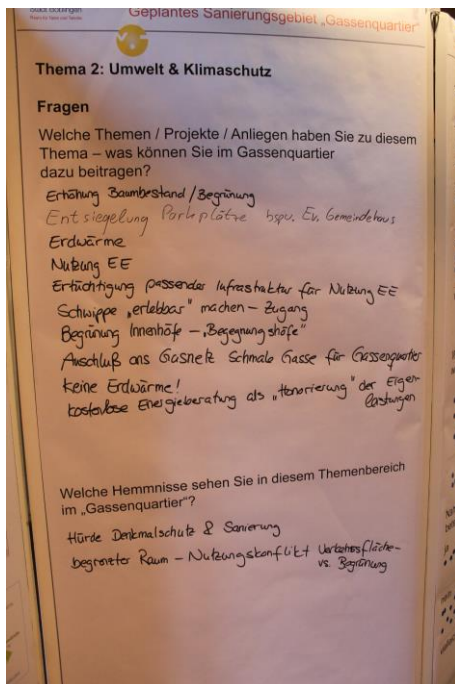 Stadt Böblingen
Geplantes Sanierungsgebiet „Gassenquartier“
Thema 2: Umwelt & Klimaschutz
Fragen
Welche Themen / Projekte / Anliegen haben Sie zu diesem
Thema – was können Sie im Gassenquartier
dazu beitragen?
Erhöhung Baumbestand / Begrünung
Entsiegelung Parkplätze bspw. Ev. Gemeindehaus
Erdwärme
Nutzung EE
Ertüchtigung passender Infrastruktur für Nutzung EE
Schwippe „erlebbar“ machen – Zugang
Begrünung Innenhöfe – „Begegnungshöfe“
Anschluß ans Gasnetz Schmale Gasse für Gassenquartier
keine Erdwärme!
kostenlose Energieberatung als „Honorierung“ der Eigen-
leistungen
Welche Hemmnisse sehen Sie in diesem Themenbereich
im „Gassenquartier“?
Hürde Denkmalschutz & Sanierung
begrenzter Raum – Nutzungskonflikt Verkehrsfläche-
vs. Begrünung